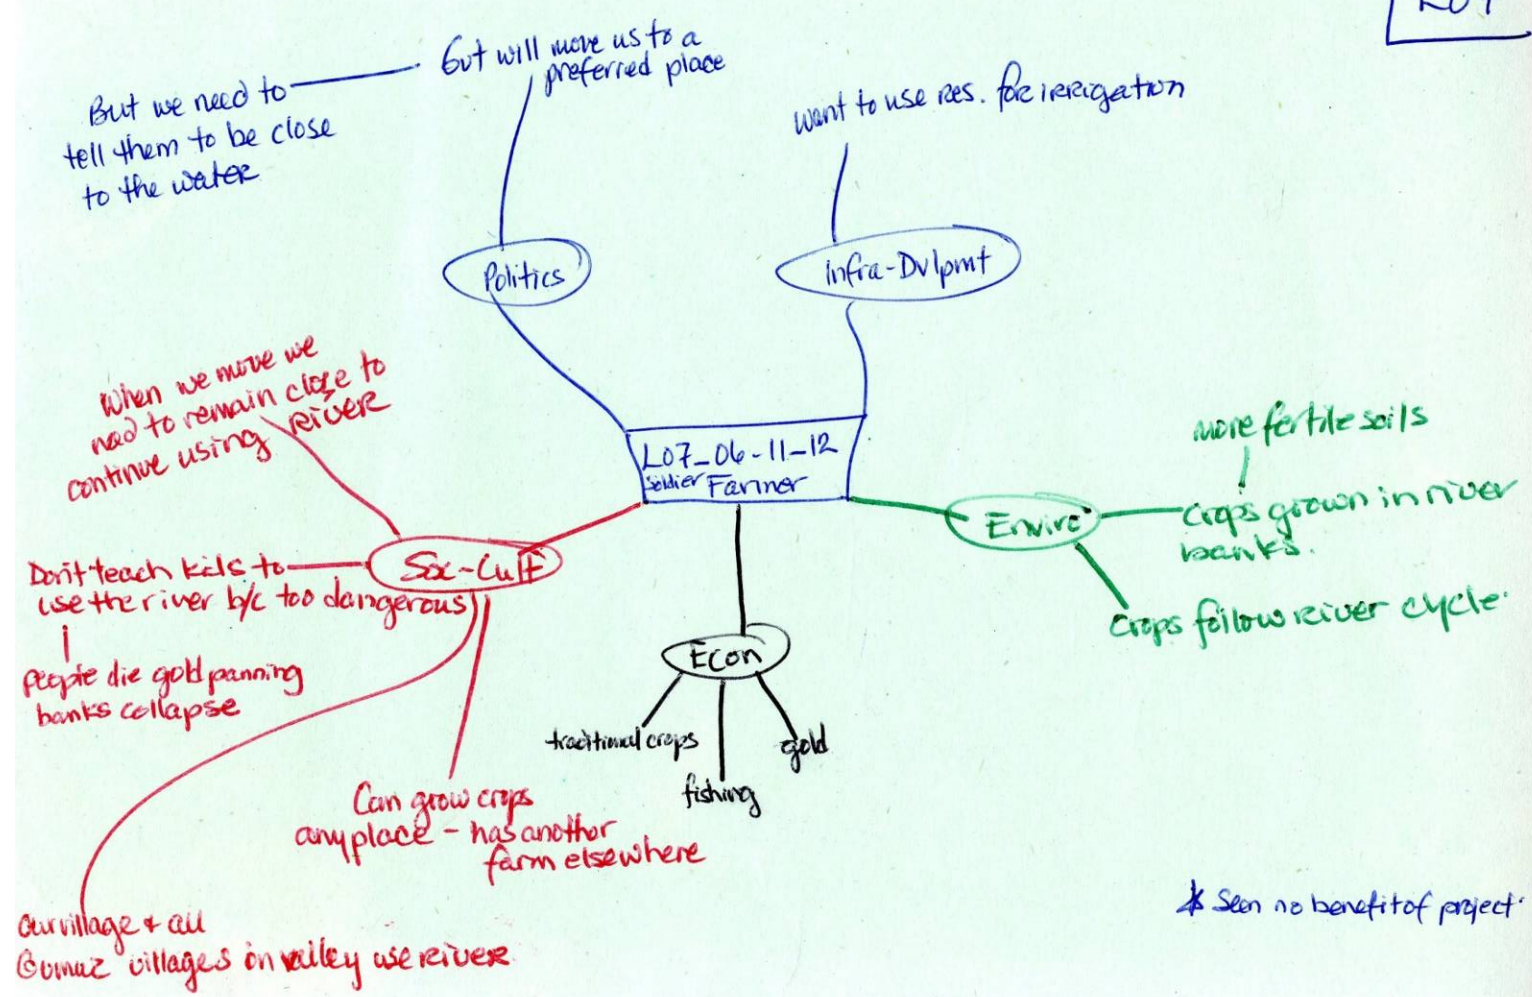 L07
Gvt will move us to a
preferred place
But we need to
tell them to be close
to the water
want to use res. for irrigation
Politics
Infra-Dvlpmt
When we move we
need to remain close to
continue using river
L07_06-11-12
Soldier Farmer
more fertile soils
Crops grown in river
banks.
Enviro
Crops follow river cycle.
Soc-Cult
Don't teach kids to
use the river b/c too dangerous
People die gold panning
banks collapse
Econ
traditional crops
fishing
gold
Can grow crops
anyplace - has another
farm elsewhere
Our village + all
Gumuz villages on valley use river
* Seen no benefit of project.